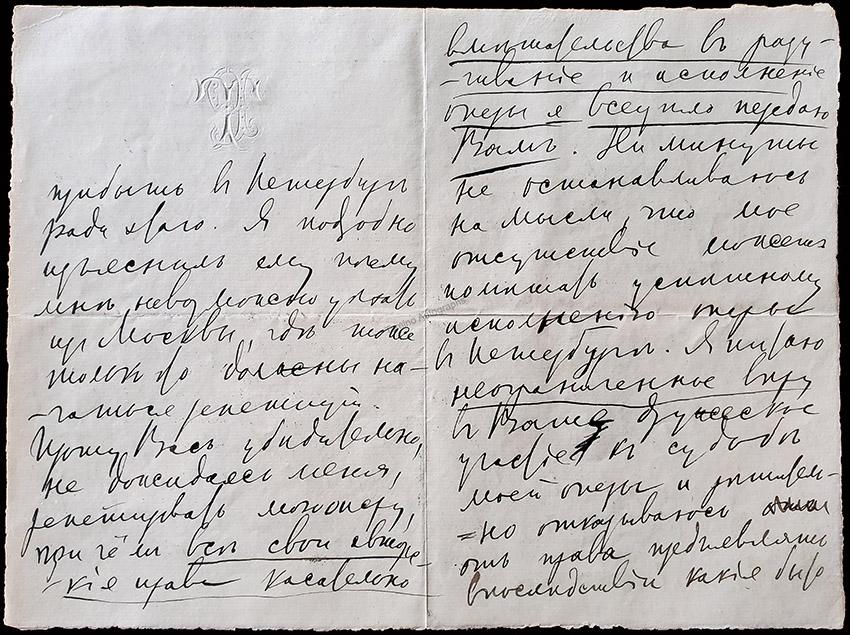 прибыть в Петербургъ
ради этого. Я подробно
изъяснилъ ему почему
мнѣ невозможно уѣхать
изъ Москвы, гдѣ тоже
только что должны на-
-чаться репетиціи.
Прошу Васъ убѣдительно,
не дожидаясь меня,
репетировать мою оперу,
при чёмъ всѣ свои авторс-
-кіе права касательно
вмѣшательства въ разу-
-чиваніе и исполненіе
оперы я всецѣло передаю
Вамъ. Ни минуты
не останавливаюсь
на мысли, что мое
отсутствіе можетъ
помѣшать успѣшному
исполненію оперы
въ Петербургѣ. Я питаю
неограниченное вѣру
въ Ваше дружеское
участіе къ судьбѣ
моей оперы и рѣшитель-
=но отказываюсь
отъ права предъявлять
впослѣдствіи какіе бы то